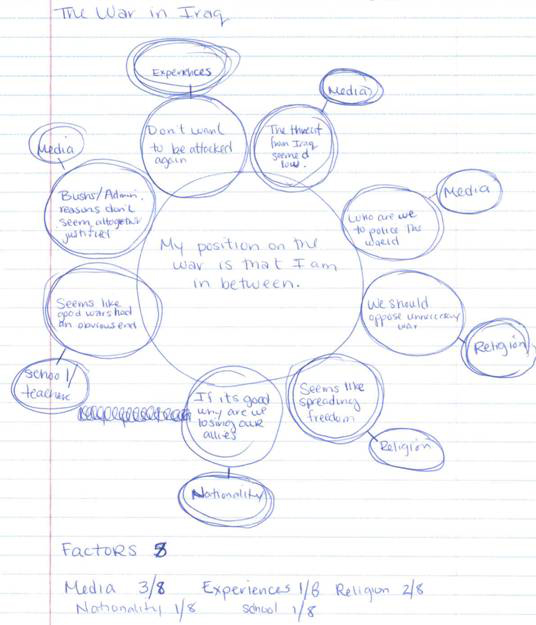 The War in Iraq
Experiences
Media
Don't want
to be attacked
again
The threat
from Iraq
seemed
low.
Media
Bushs/Admin.
reasons don't
seem altogether
justified
Media
Who are we
to police the
world
My position on the
war is that I am
in between.
Seems like
good wars had
an obvious end
We should
oppose unnecessary
war
Religion
School/
teachers
If its good
why are we
losing our
allies
Seems like
spreading
freedom
Religion
Nationality
Factors 5
Media 3/8 Experiences 1/8 Religion 2/8
Nationality 1/8 school 1/8